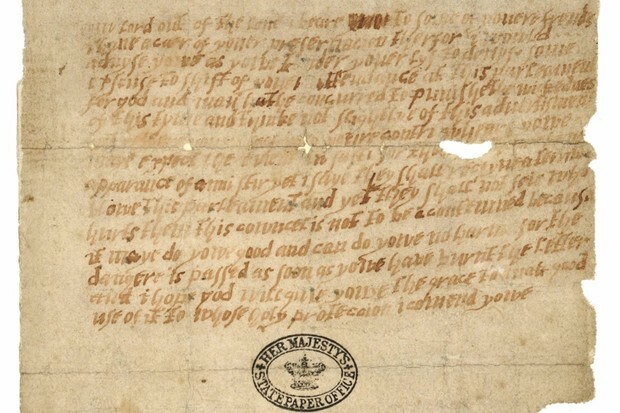 lord out of the love i beare to some of youere frends
i have a caer of youer preseruacion therfor i would
aduyse yowe as yowe tender youer lyf to deuyse some
exscuse to shift of youer attendance at this parleament
for god and man hathe concurred to punishe the wickednes
of this tyme and thinke not slightlye of this aduertisment
contri wheare yowe
maye expect the event in safti for
apparance of anni stir yet i saye they shall receyue a terrible
blowe this parleament and yet they shall not seie who
hurts them this councel is not to be contemned because
it maye do yowe good and can do yowe no harme for the
dangere is passed as soon as yowe have burnt the letter
and i hope god will give yowe the grace to mak good
use of it to whose holy proteccion i comend yowe
HER MAJESTY'S
STATE PAPER OFFICE